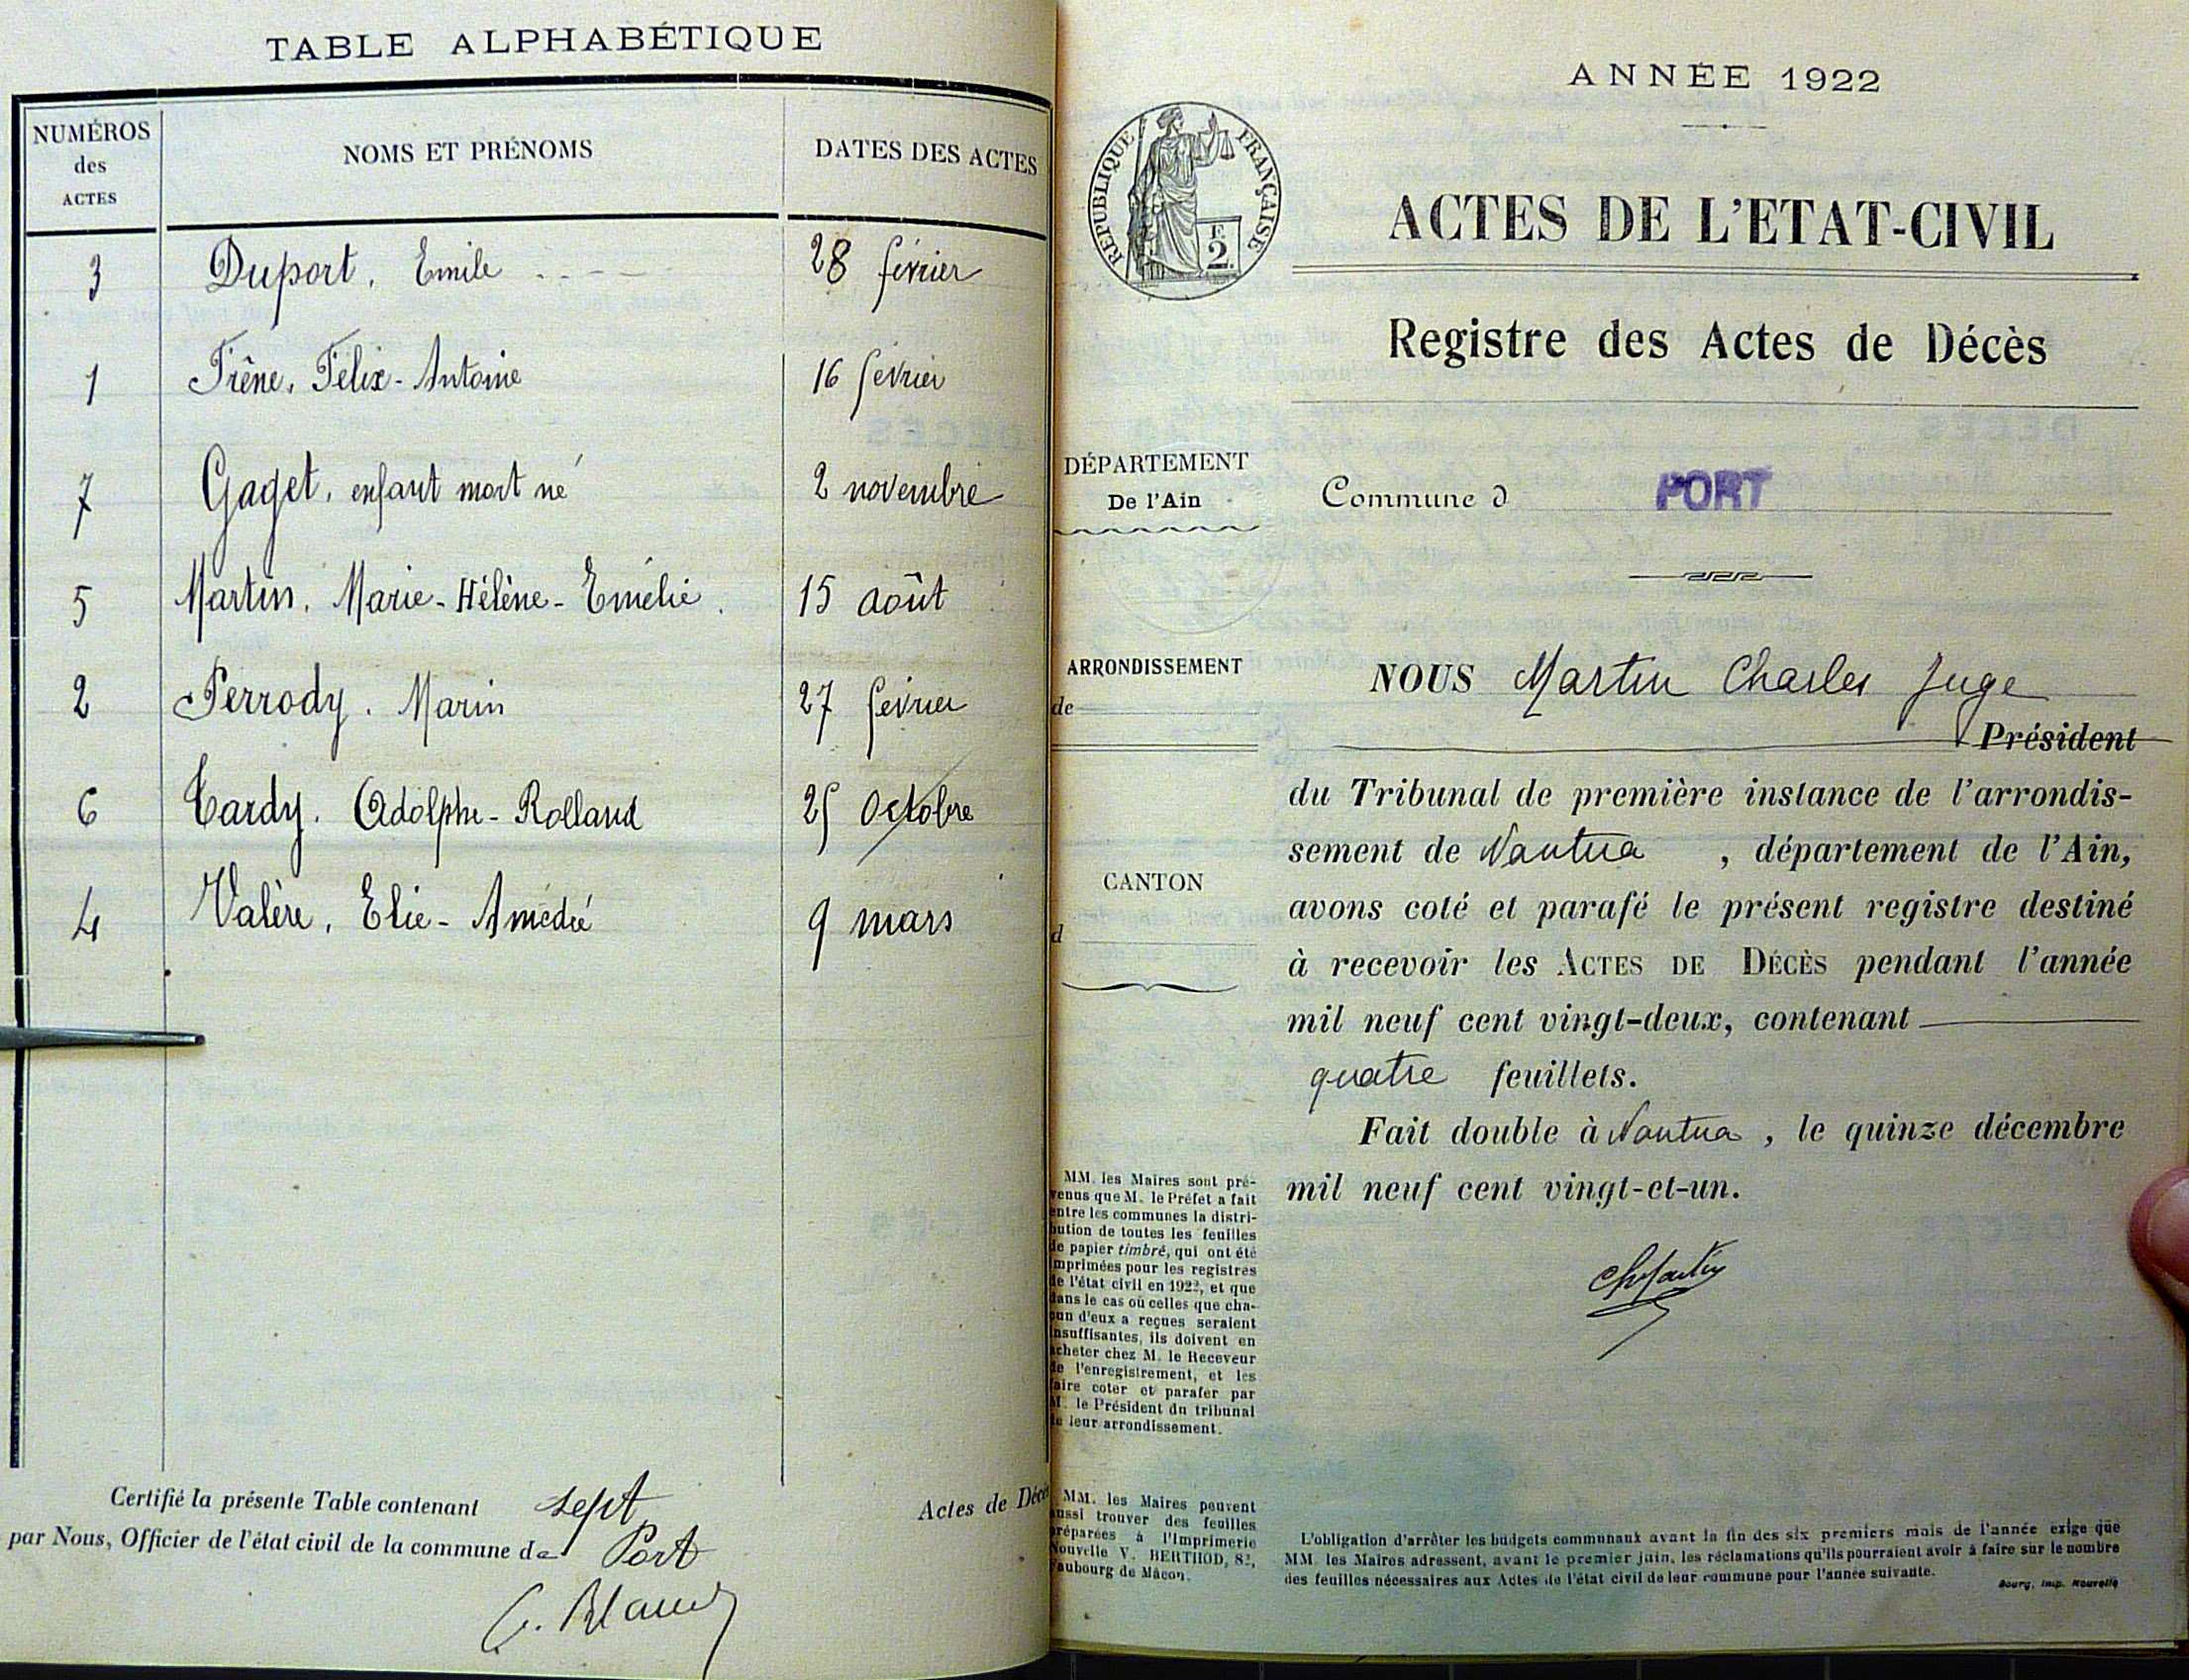 TABLE ALPHABÉTIQUE
NUMÉROS
des
ACTES
NOMS ET PRÉNOMS
DATES DES ACTES
3 Duport, Emile 28 février
1 Frêne, Félix-Antoine 16 février
7 Gaget, enfant mort né 2 novembre
5 Martin, Marie-Hélène-Emélie. 15 août
2 Perrody. Marin 27 février
6 Tardy. Adolphe-Rolland 25 Octobre
4 Valère, Elie-Amédié 9 mars
Certifié la présente Table contenant sept Actes de Décès
par Nous, Officier de l'état civil de la commune de Port
ANNÉE 1922
RÉPUBLIQUE FRANÇAISE
F.
2.
ACTES DE L'ETAT-CIVIL
Registre des Actes de Décès
DÉPARTEMENT
De l'Ain
Commune d PORT
ARRONDISSEMENT
de
CANTON
d
NOUS Martin Charles Juge
Président
du Tribunal de première instance de l'arrondis-
sement de Nantua , département de l'Ain,
avons coté et parafé le présent registre destiné
à recevoir les ACTES DE DÉCÈS pendant l'année
mil neuf cent vingt-deux, contenant
quatre feuillets.
Fait double à Nantua , le quinze décembre
mil neuf cent vingt-et-un.
MM. les Maires sont pré-
venus que M. le Préfet a fait
entre les communes la distri-
bution de toutes les feuilles
de papier timbré, qui ont été
imprimées pour les registres
de l'état civil en 1922, et que
dans le cas où celles que cha-
cun d'eux a reçues seraient
insuffisantes, ils doivent en
acheter chez M. le Receveur
de l'enregistrement, et les
faire coter et parafer par
M. le Président du tribunal
de leur arrondissement.
MM. les Maires peuvent
aussi trouver des feuilles
préparées à l'Imprimerie
Nouvelle V. BERTHOD, 82,
Faubourg de Mâcon.
L'obligation d'arrêter les budgets communaux avant la fin des six premiers mois de l'année exige que
MM. les Maires adressent, avant le premier juin, les réclamations qu'ils pourraient avoir à faire sur le nombre
des feuilles nécessaires aux Actes de l'état civil de leur commune pour l'année suivante.
Bourg, Imp. Nouvelle